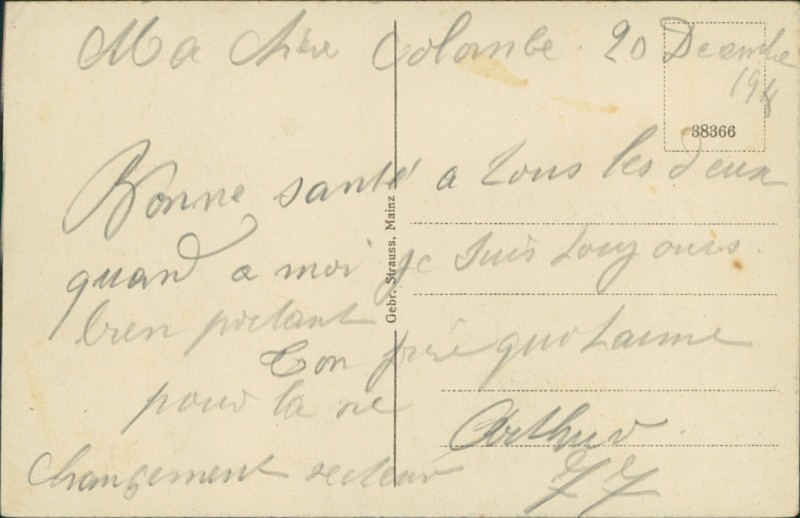 Ma chère Colombe. 20 Desembre
1918
38366
Bonne santé a tous les deux
quand a moi je suis toujours
bien portant
Ton frère qui taime
pour la vie
Arthur
changement secteur 77
Gebr. Strauss, Mainz